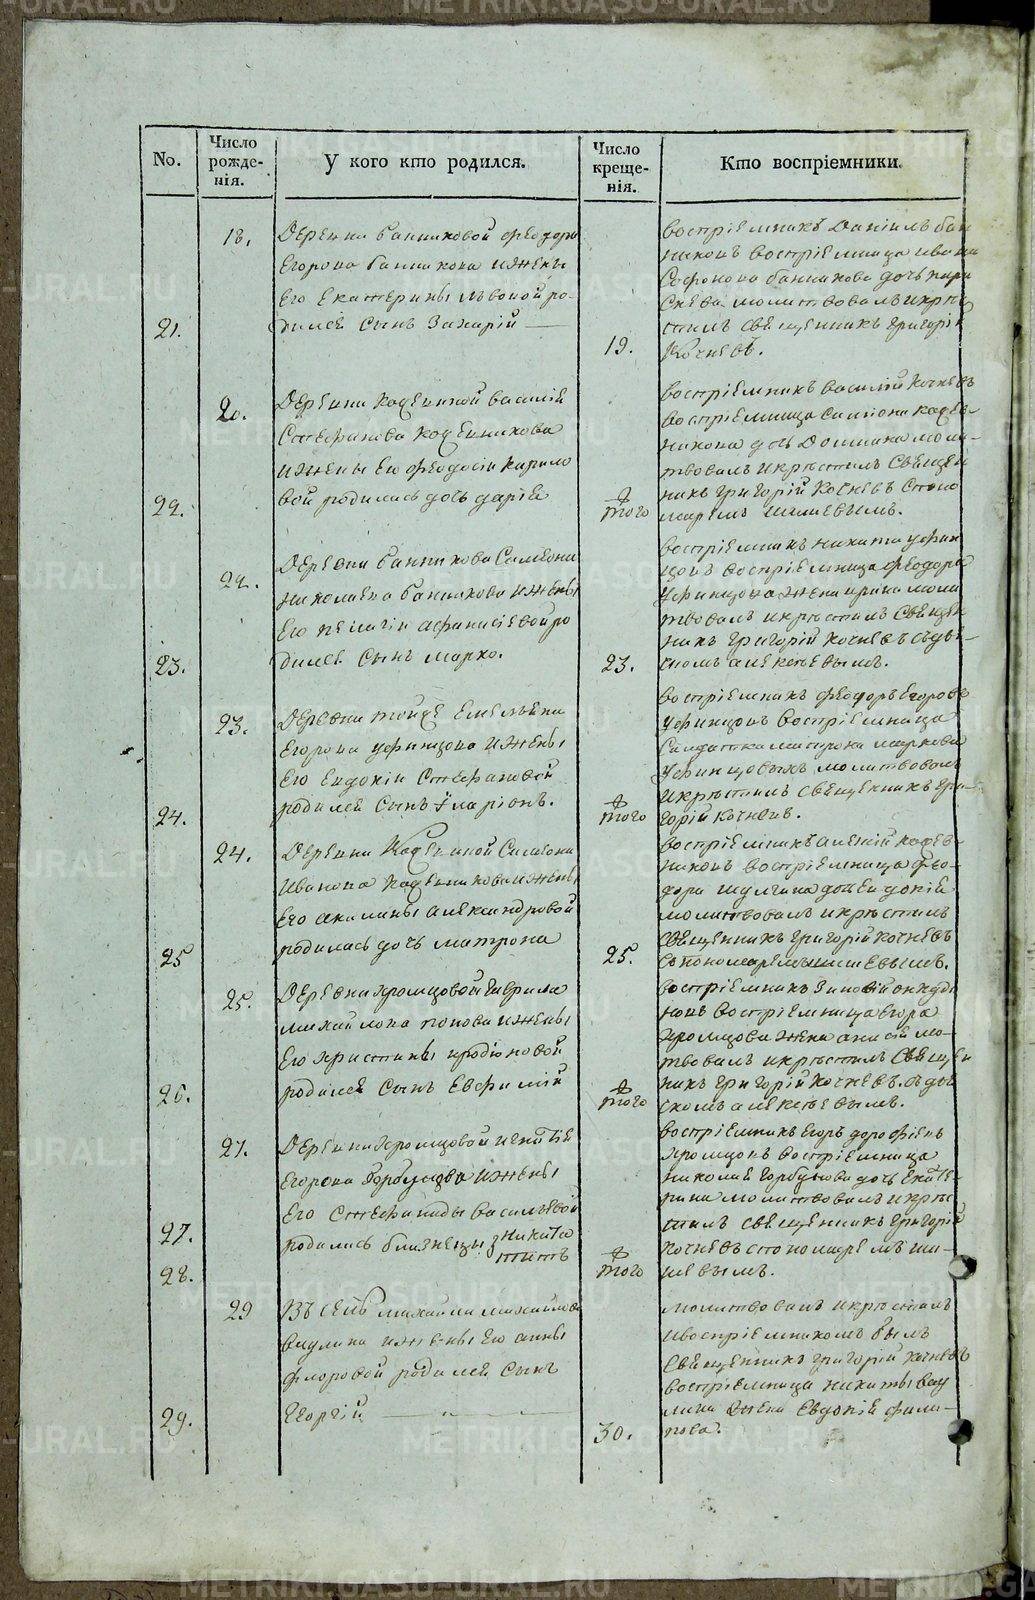 No.
Число рожде-нія.
У кого кто родился.
Число креще-нія.
Кто воспріемники.
21.
18.
Деревни банниковой феодора
Егорова банникова ижены
Его Екатерины львовой ро-
дился сынъ Захарій
19.
воспріемникъ Даніилъ бан
никовъ воспріемница ивана
Софонова банникова дочь пара
скева молитвовалъ икре
стилъ священникъ григорій
Кочневъ.
22.
20.
Деревни Кадешной василія
Стефанова Кадешникова
ижены Его феодосіи Кирило
вой родилась дочь дарія
того
воспріемникъ василій Кочневъ
воспріемница симіона кадеш-
никова дочь Домника моли-
твовалъ икрестилъ священ
никъ григорій Кочневъ спono
маремъ
23.
22.
Деревни банникова Симеона
николаева банникова ижены
Его пелагіи афанасіевой ро
дился сынъ марко.
23.
воспріемникъ никита уфин
цовъ воспріемница феодора
уфинцова жена ирина моли
твовалъ икрестилъ священ
никъ григорій Кочневъ сдья-
комъ алексеевымъ.
24.
23.
Деревни тойже Емельяна
Егорова уфинцова ижены
Его Евдокіи Стефановой
родился сынъ Иларіонъ.
того
воспріемникъ феодоръ Егоровъ
уфинцовъ воспріемница
Салдатка матрона маркова
уфинцовыхъ молитвовалъ
икрестилъ священникъ гри-
горій Кочневъ.
25
24.
Деревни Кадешной Симеона
Иванова Кадешникова ижены
Его акилины александровой
родилась дочь матрона
25.
воспріемникъ алексій кадеш-
никовъ воспріемница фео-
дора дочь Евдокія
молитвовалъ икрестилъ
священникъ григорій Кочневъ
спономаремъ
26.
25.
Деревни хромцовой гаврила
михайлова попова ижены
Его христины иродіоновой
родился сынъ Евфимій
того
воспріемникъ Зиновій
новъ воспріемница Егора
хромцова жена анисія мо-
твовалъ икрестилъ священ
никъ григорій Кочневъ сдья
комъ алексеевымъ.
27.
28.
27.
Деревни хромцовой игнатія
Егорова горбунова ижены
Его Стефаниды васильевой
родились близнецы никита
титъ
того
воспріемникъ Егоръ дорофіевъ
хромцовъ воспріемница
николая горбунова дочь Екате-
рина молитвовалъ икре
стилъ священникъ григорій
Кочневъ спономаремъ ши-
шевымъ.
29.
29
Въ селе михаила михайлова
ваулина ижены Его анны
флоровой родился сынъ
Георгій
30.
молитвовалъ икрестилъ
ивоспріемникомъ былъ
священникъ григорій Кочневъ
воспріемница никиты вау
лина жена Евдокія фили-
пова.